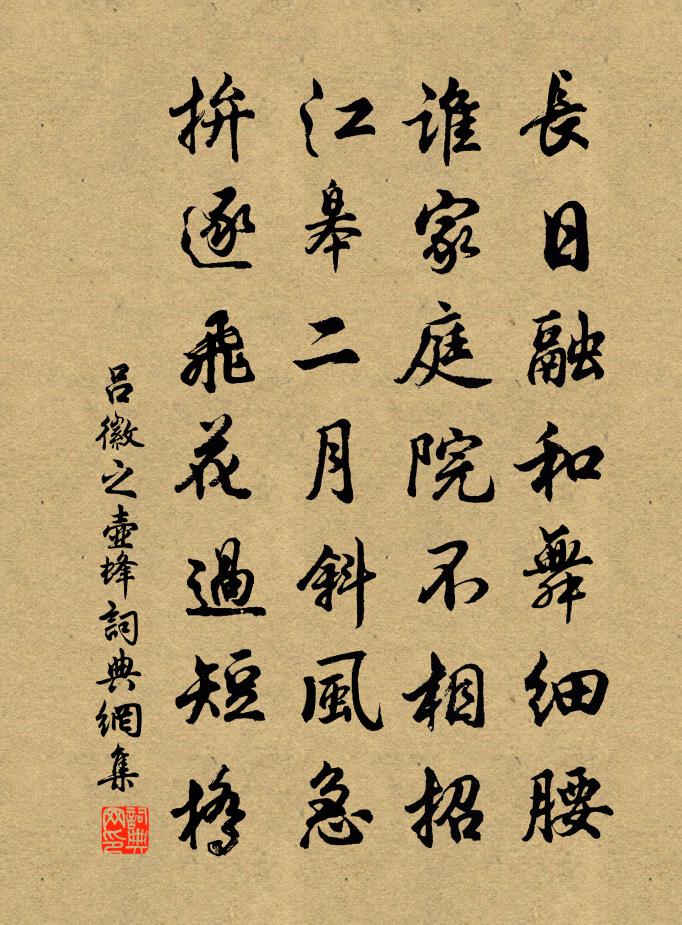 長日融和舞細腰
誰家庭院不相招
江皋二月斜風急
拚逐飛花過短橋
呂徽之壺峰詞典網集
詞典網印